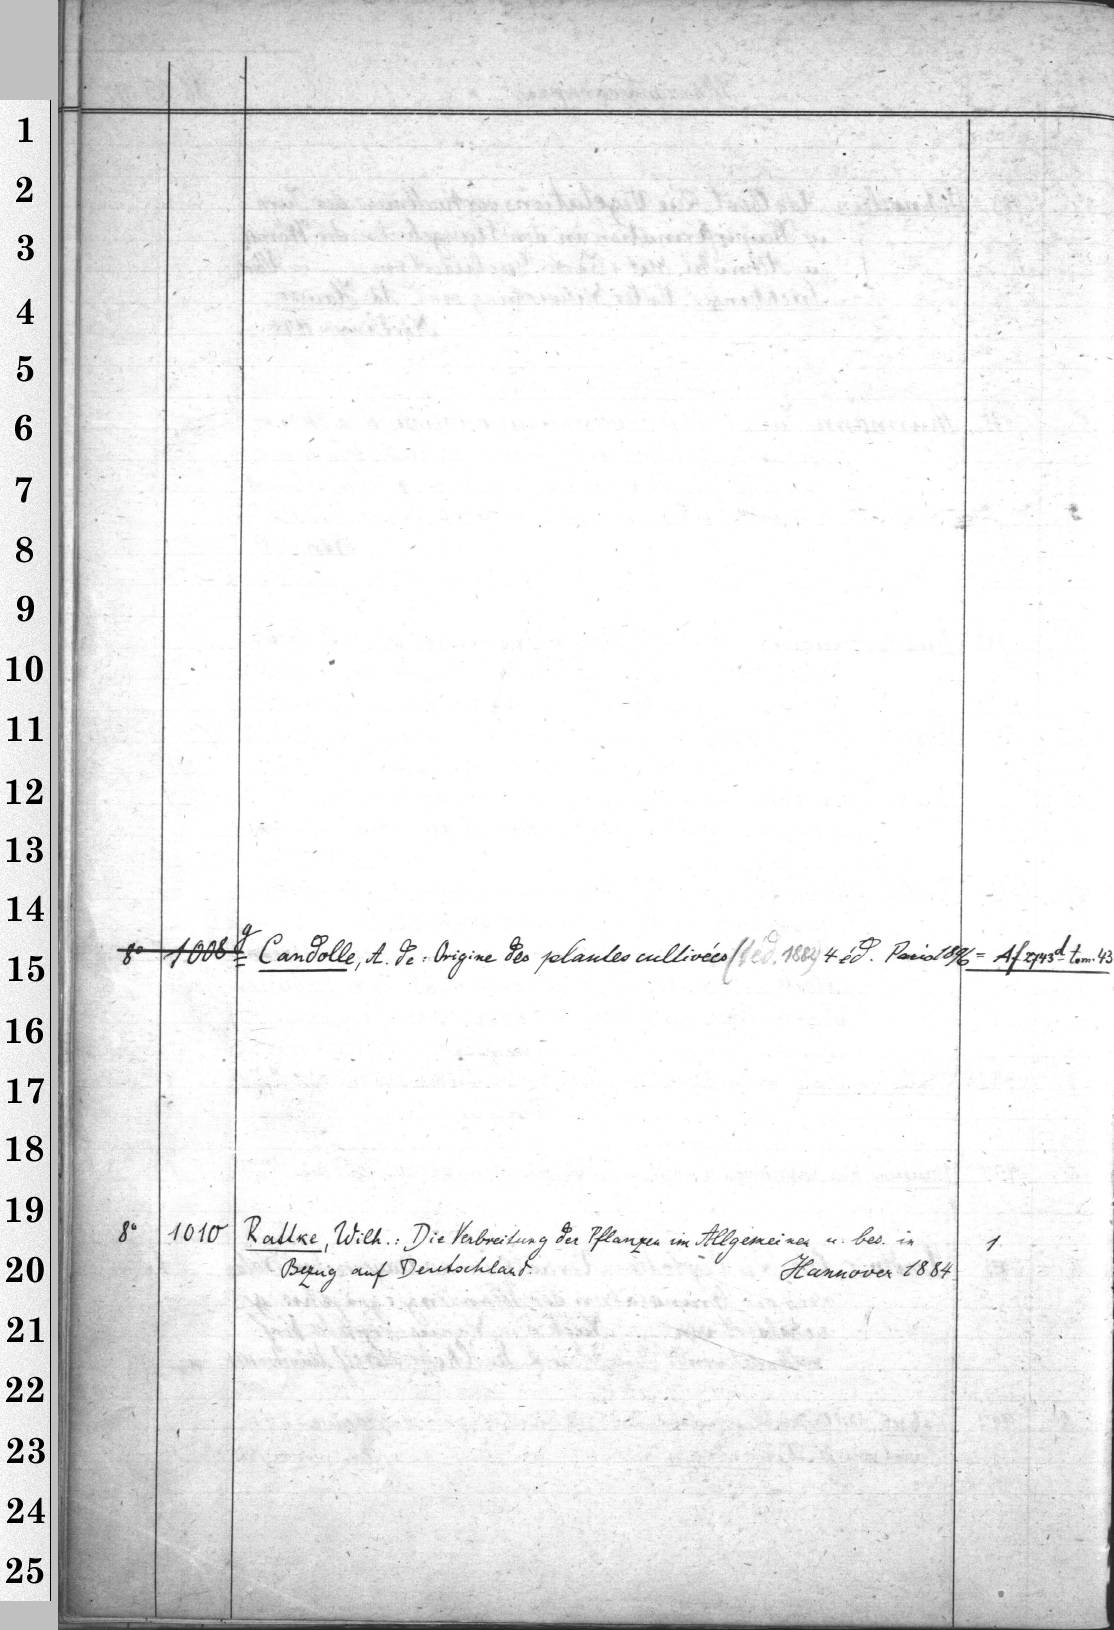 1
2
3
4
5
6
7
8
9
10
11
12
13
14
15
16
17
18
19
20
21
22
23
24
25
8° 1008g Candolle, A. de: Origine des plantes cultivées (1 éd. 1883) 4 éd. Paris 1896 = Af 2743d tom. 43
8° 1010 Rattke, Wilh.: Die Verbreitung der Pflanzen im Allgemeinen u. bes. in 1
Bezug auf Deutschland. Hannover 1884